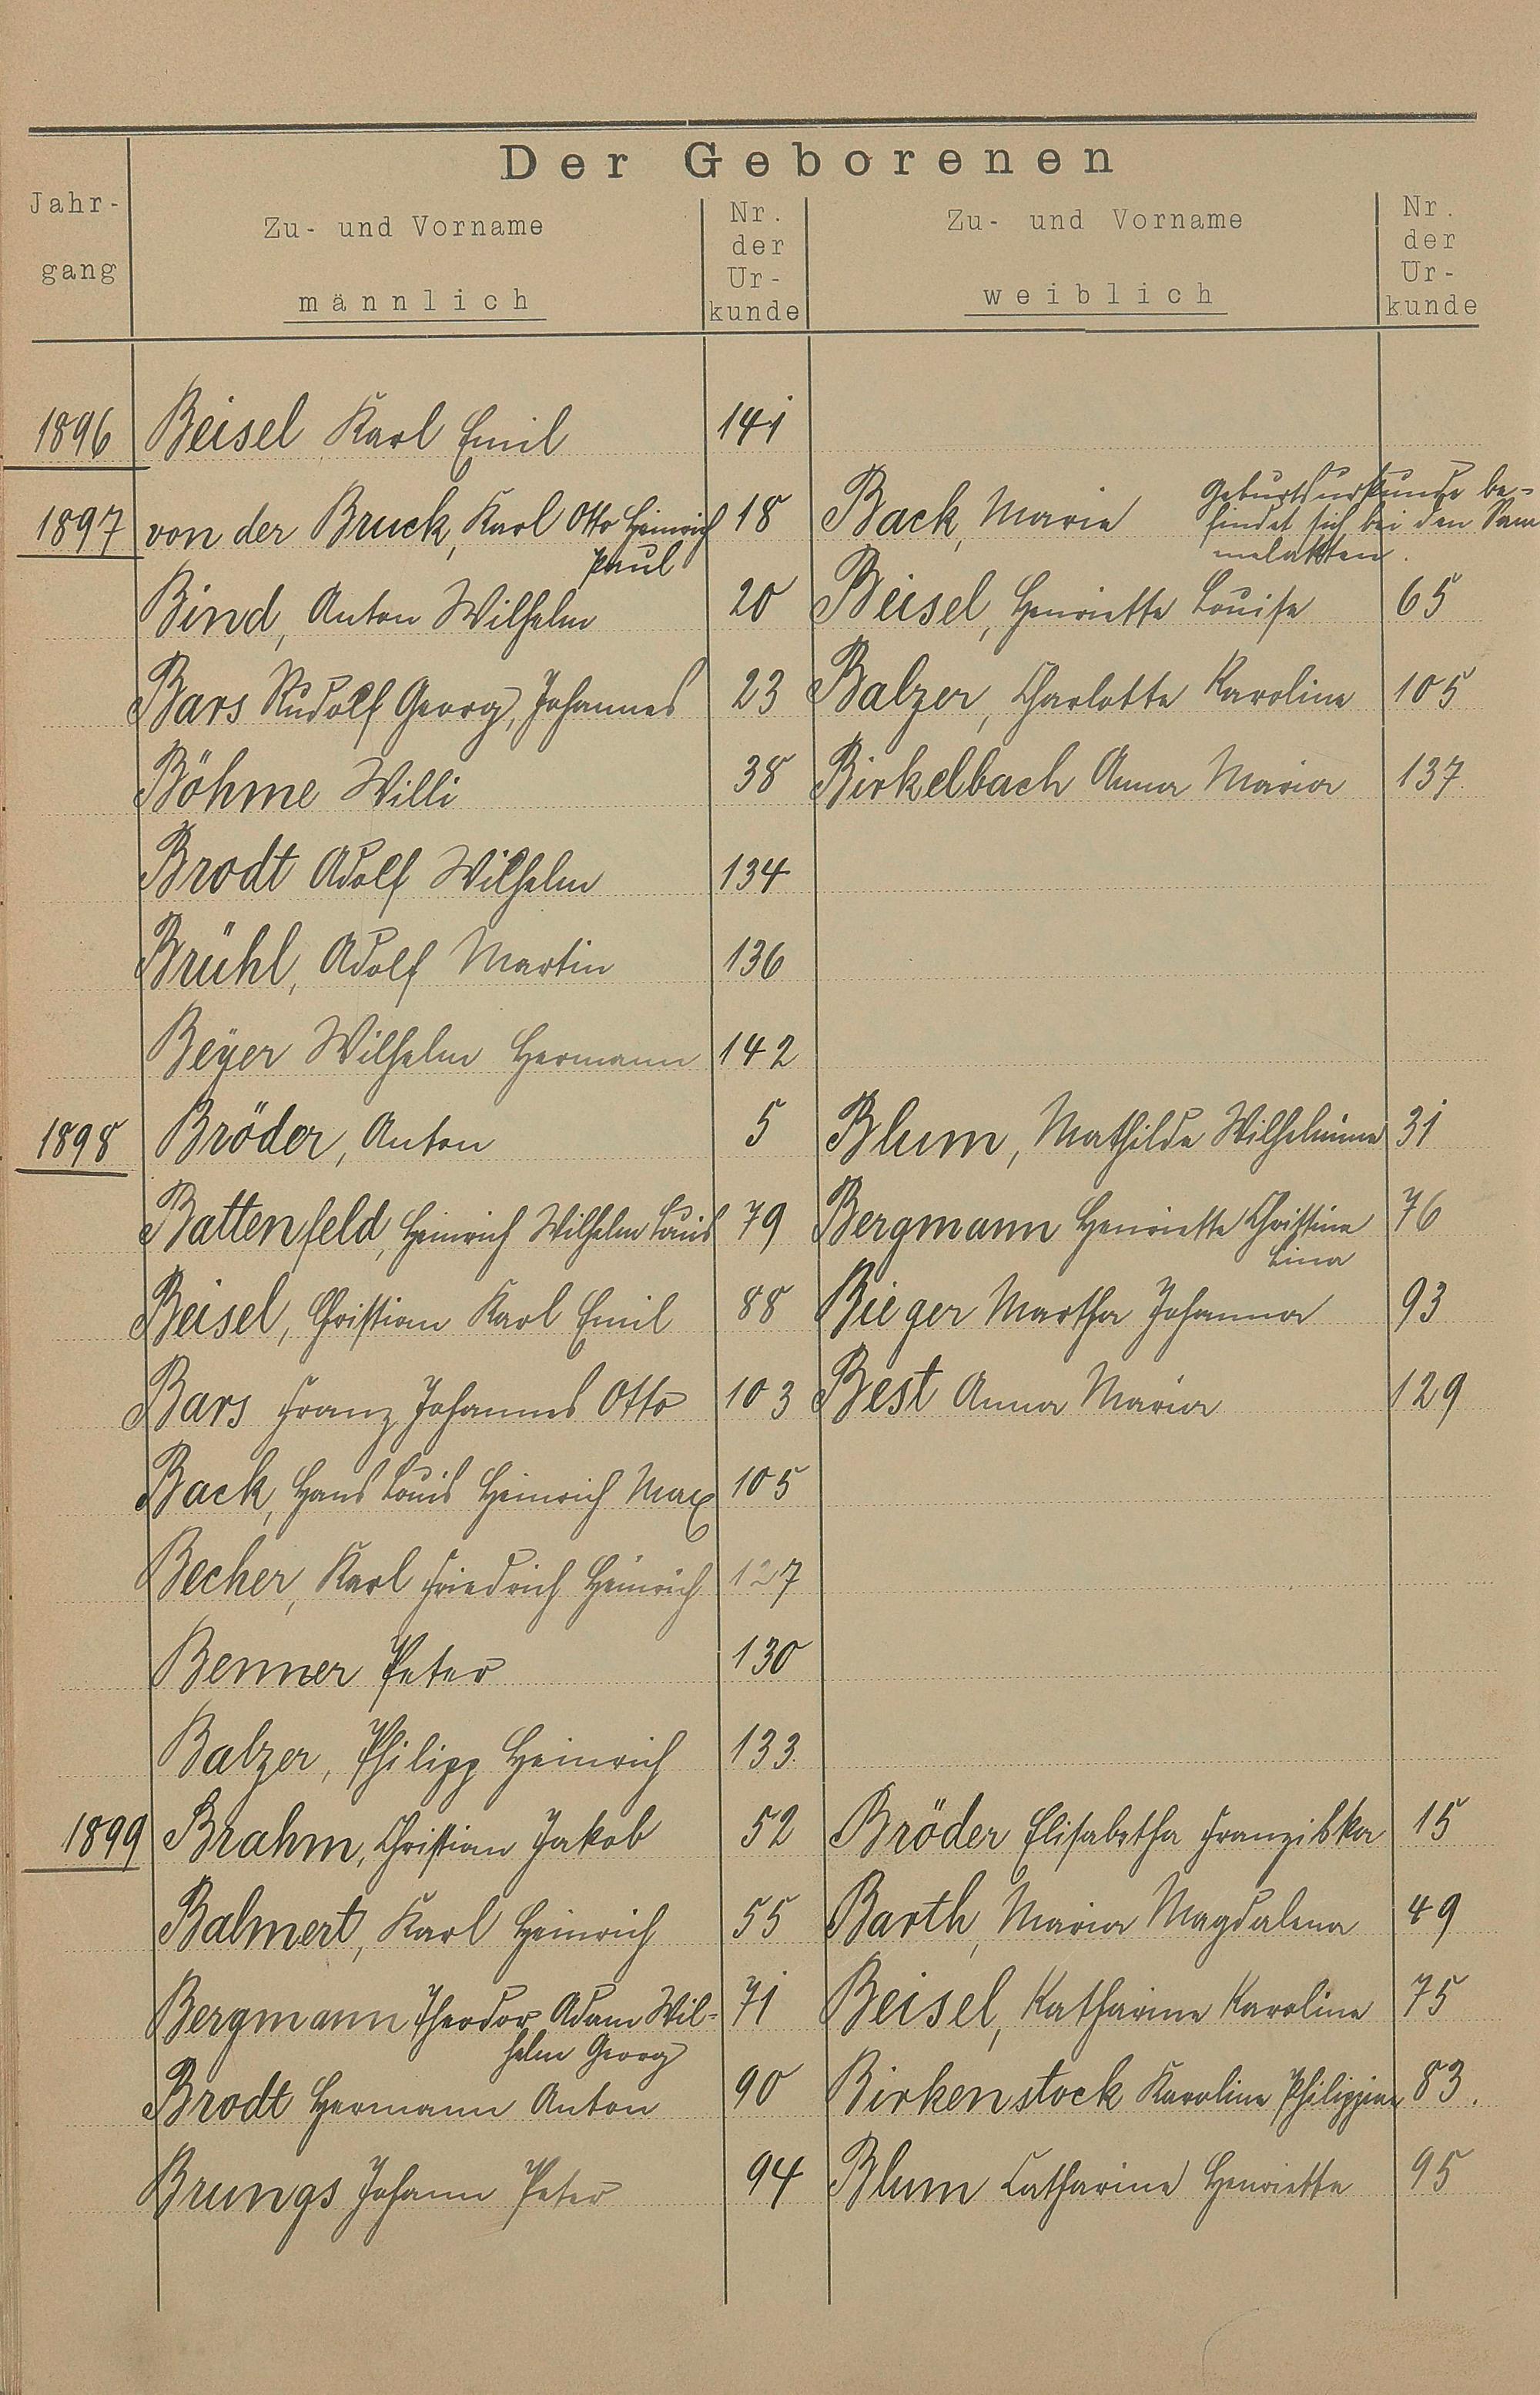 Der Geborenen
Jahr-
gang
Zu- und Vorname
männlich
Nr.
der
Ur-
kunde
Zu- und Vorname
weiblich
Nr.
der
Ur-
kunde
1896 Beisel Karl Emil 141
1897 von der Bruck, Karl Otto Heinrich 18 Back, Marie Geburtsurkunde be-
Paul findet sich bei den Sam
melakten.
Bind, Anton Wilhelm 20 Beisel, Henriette Louise 65
Bars Rudolf Georg, Johannes 23 Balzer, Charlotte Karoline 105
Böhme Willi 38 Birkelbach Anna Maria 137
Brodt Adolf Wilhelm 134
Brühl, Adolf Martin 136
Beyer Wilhelm Hermann 142
1898 Bröder, Anton 5 Blum, Mathilde Wilhelmine 31
Battenfeld, Heinrich Wilhelm Louis 79 Bergmann Henriette Christine 76
Lina
Beisel, Christian Karl Emil 88 Bieger Martha Johanna 93
Bars Franz Johannes Otto 103 Best Anna Maria 129
Back, Hans Louis Heinrich Max 105
Becher, Karl Friedrich Heinrich 127
Benner Peter 130
Balzer, Philipp Heinrich 133.
1899 Brahm, Christian Jakob 52 Bröder Elisabetha Franziska 15
Balmert, Karl Heinrich 55 Barth, Maria Magdalena 49
Bergmann Theodor Adam Wil- 71 Beisel, Katharine Karoline 75
helm Georg
Brodt Hermann Anton 90 Birkenstock Karoline Philippine 83.
Brungs Johann Peter 94 Blum Catharine Henriette 95